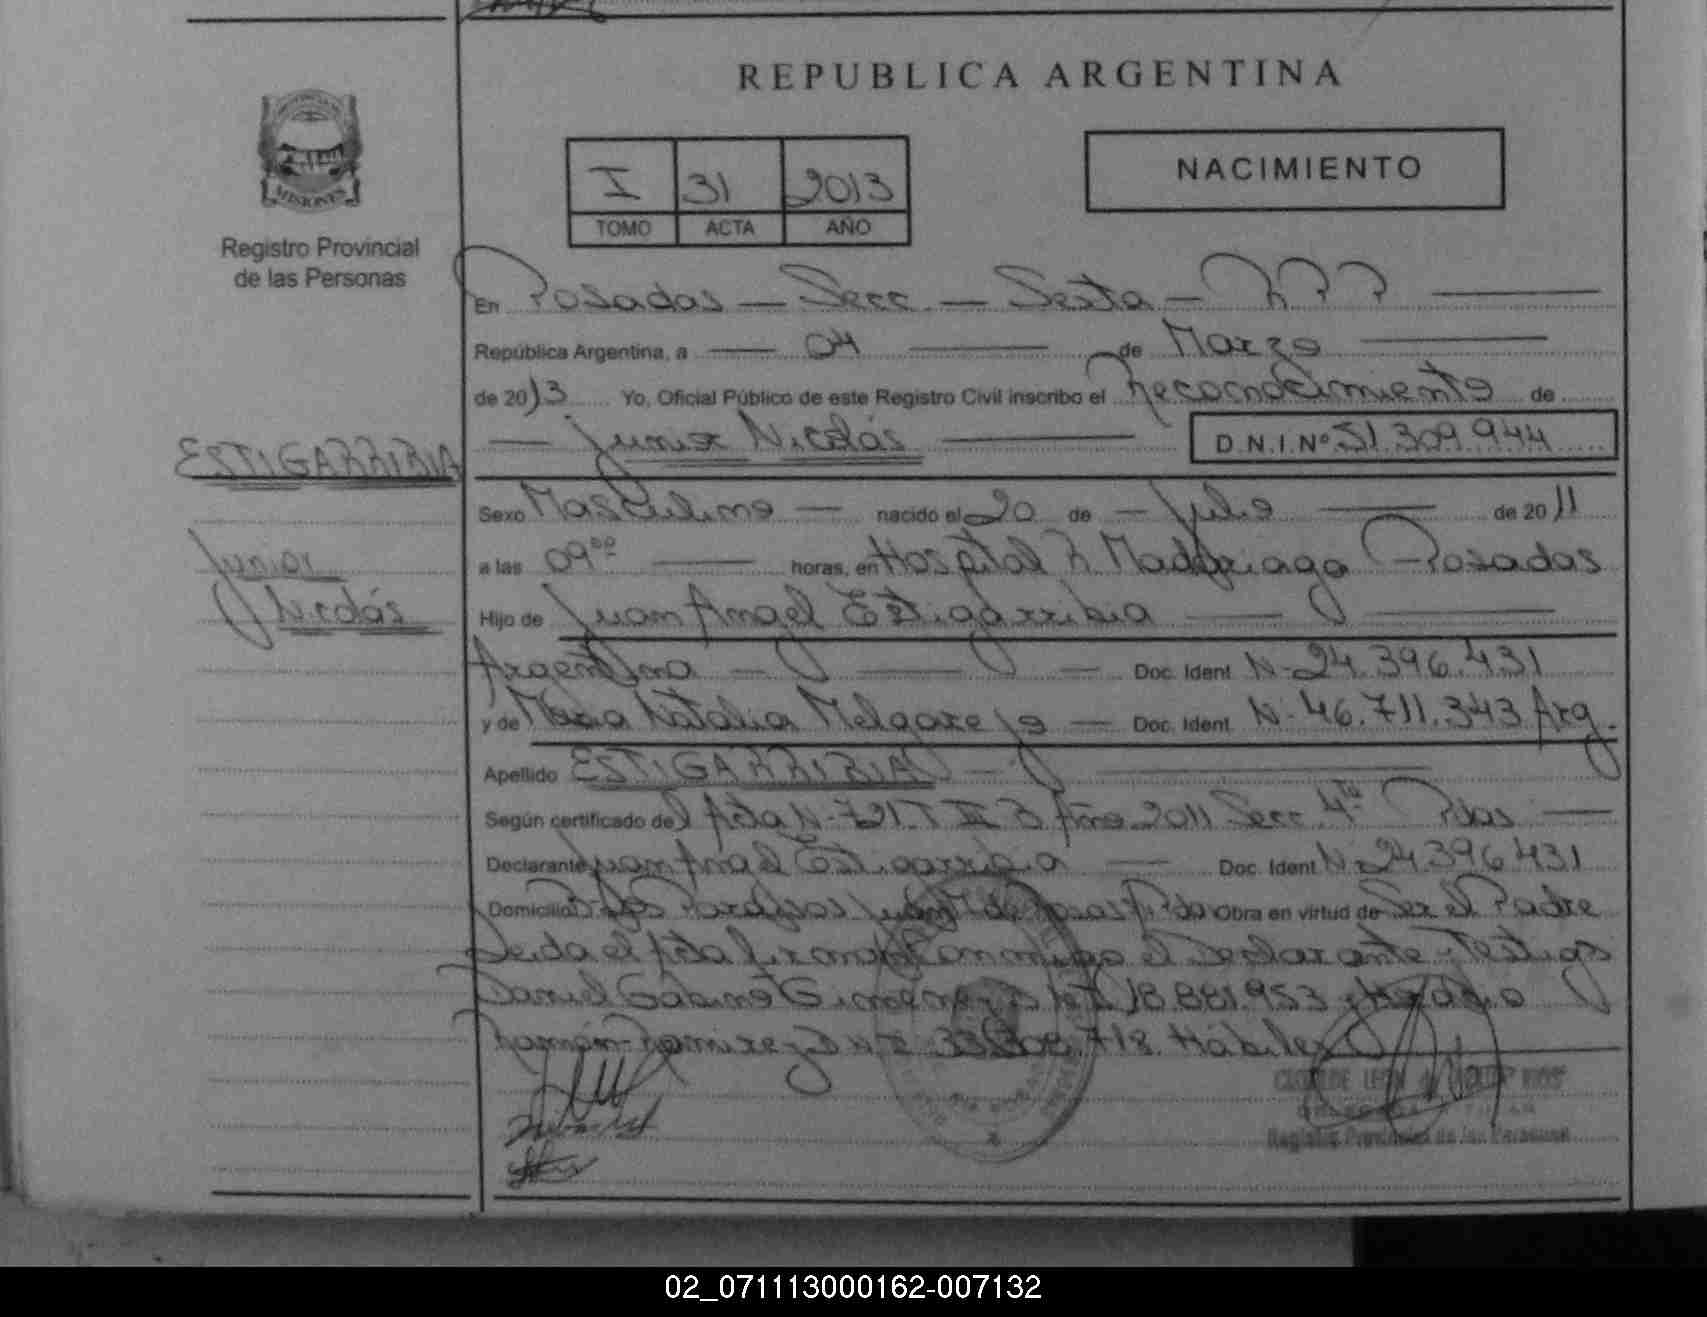 REPUBLICA ARGENTINA
NACIMIENTO
I 31 2013
TOMO ACTA AÑO
MISIONES
Registro Provincial
de las Personas
En Posadas — Secc. — Sexta — R P P
República Argentina, a — 04 — de Marzo
de 2013 Yo, Oficial Público de este Registro Civil inscribo el Reconocimiento de
— Junior Nicolás — D.N.I. Nº 51.309.944
ESTIGARRIBIA
Junior
Nicolás
Sexo Masculino — nacido el 20 de — Julio — de 2011
a las 09⁰⁰ — horas, en Hospital R Madariaga Posadas
Hijo de Juan Angel Estigarribia —
Argentino — Doc. Ident. N- 24.396.431
y de Maria Natalia Melgarejo — Doc. Ident. N- 46.711.343 Arg.
Apellido ESTIGARRIBIA —
Según certificado del Acta N- 721 T III Año 2011 Secc. 4ta Pdas —
Declarante Juan Angel Estigarribia — Doc. Ident. N- 24396431
Domicilio Juan M de Rosas Obra en virtud de Ser el Padre
Leida el Acta firman Conmigo el Declarante y Testigos
Daniel Gabino Gimenez 18.881.953
Ramón Ramirez 718. Hábiles
Registro Provincial de las Personas
02_071113000162-007132